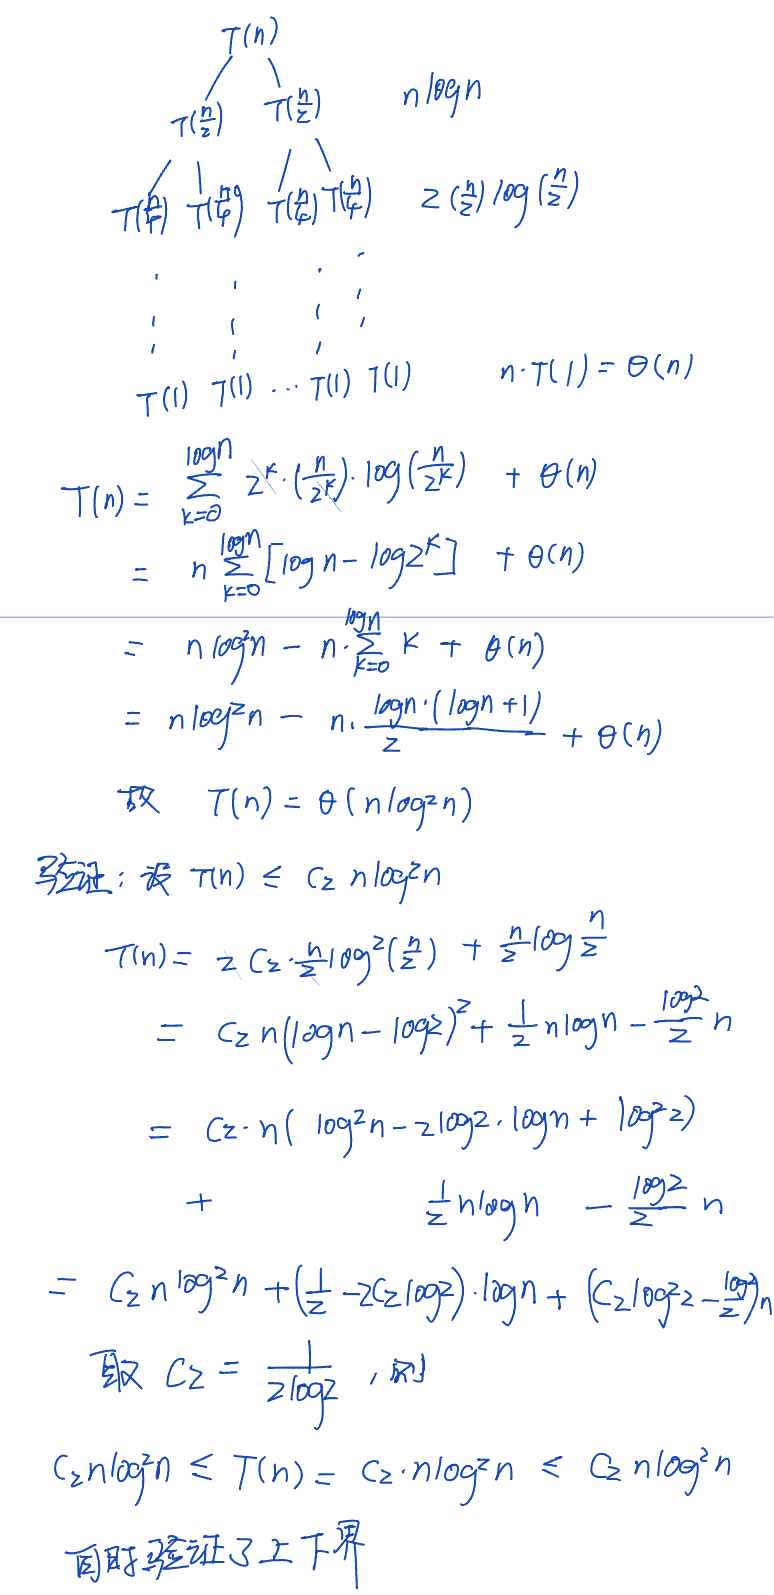 T(n)
T(n/2) T(n/2) n log n
T(n/4) T(n/4) T(n/4) T(n/4) 2(n/2) log(n/2)
T(1) T(1) ... T(1) T(1) n·T(1) = θ(n)
T(n) = ∑_{k=0}^{log n} 2^k·(n/2^k)·log(n/2^k) + θ(n)
= n ∑_{k=0}^{log n} [log n − log 2^k] + θ(n)
= n log²n − n·∑_{k=0}^{log n} k + θ(n)
= n log²n − n· log n·(log n + 1)/2 + θ(n)
故 T(n) = θ(n log²n)
验证: 设 T(n) ≤ C₂ n log²n
T(n) = 2 C₂·n/2 log²(n/2) + n/2 log n/2
= C₂ n(log n − log 2)² + 1/2 n log n − log2/2 n
= C₂·n( log²n − 2 log 2·log n + log²2)
+ 1/2 n log n − log2/2 n
= C₂ n log²n + (1/2 − 2C₂ log 2)·log n + (C₂ log²2 − log2/2)n
取 C₂ = 1/(2 log 2) , 则
C₂ n log²n ≤ T(n) = C₂·n log²n ≤ C₂ n log²n
同时验证了上下界